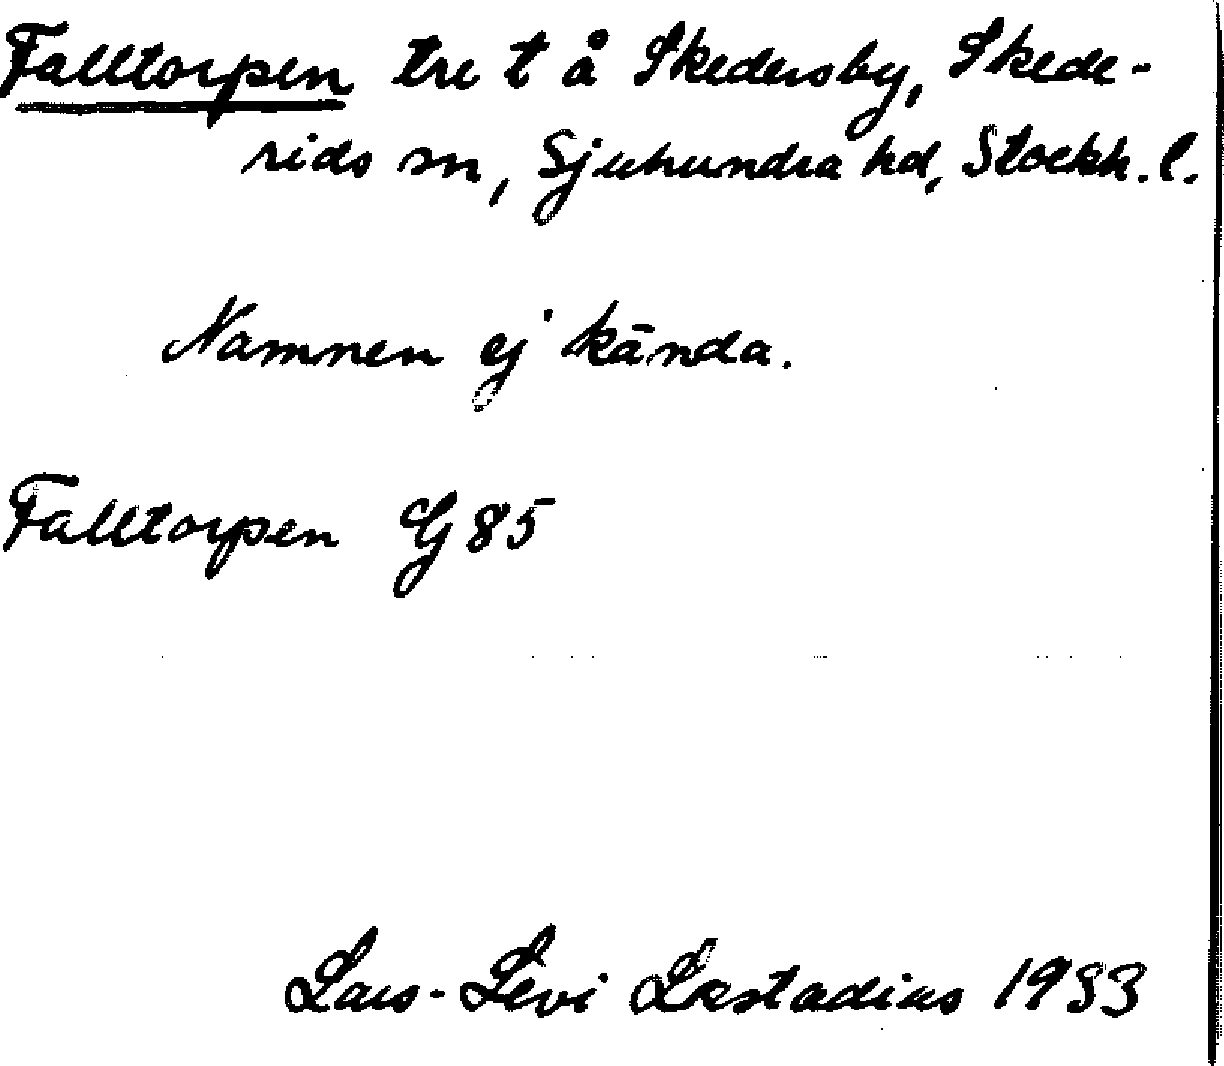 Falltorpen tre t å Skedersby, Skede-
rids sn, Sjuhundra hd, Stockh. l.
Namnen ej kända.
Falltorpen G 85
Lars-Levi Læstadius 1933